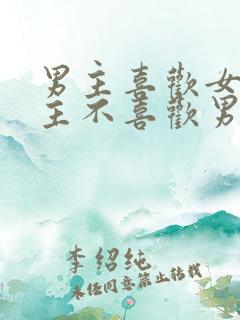 男主喜歡女
主不喜歡男
李紹純
未任同意禁止转载